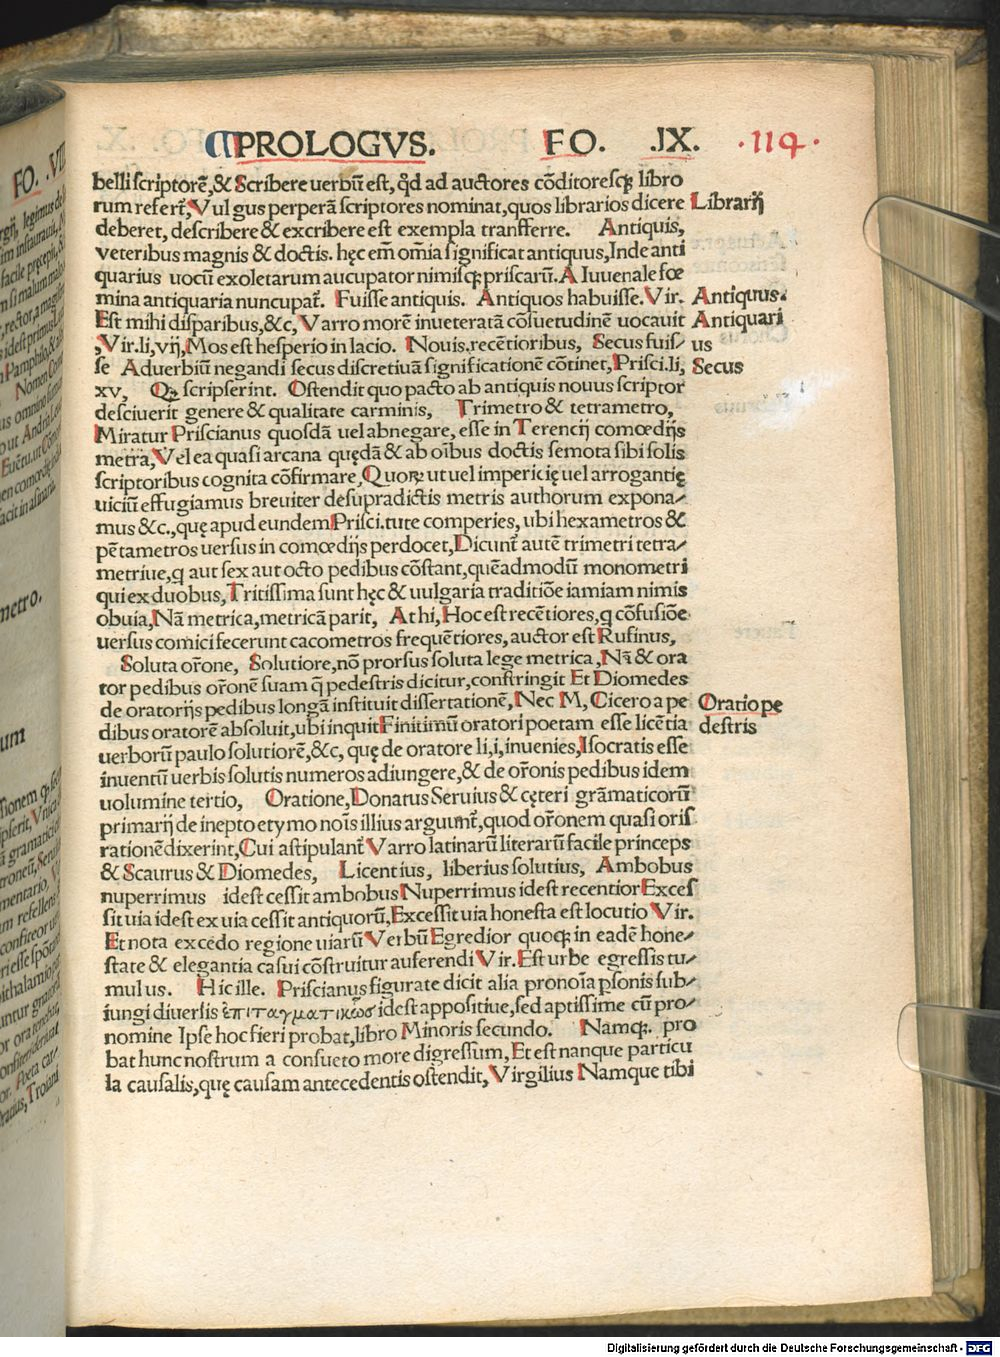 PROLOGVS. FO. .IX. ·114·
belli scriptorē,& Scribere uerbū est, qđ ad auctores cōditoresqꝫ libro
rum refert̄,Vulgus perperā scriptores nominat,quos librarios dicere Librarij
deberet, describere & excribere est exempla transferre. Antiquis,
veteribus magnis & doctis. hęc em̄ om̄ia significat antiquus,Inde anti
quarius uocū exoletarum aucupator nimisqꝫ priscarū. A Iuuenale fœ
mina antiquaria nuncupat̄. Fuisse antiquis. Antiquos habuisse. Vir. Antiquus.
Est mihi disparibus,&c, Varro morē inueteratā cōsuetudinē uocauit Antiquari
,Vir.li,vij,Mos est hesperio in lacio. Nouis.recētioribus, Secus fuis/ us
se Aduerbiū negandi secus discretiuā significationē cōtinet,Prisci.li, Secus
xv, Qꝫ scripserint. Ostendit quo pacto ab antiquis nouus scriptor
desciuerit genere & qualitate carminis, Trimetro & tetrametro,
Miratur Priscianus quosdā uel abnegare, esse in Terencij comœdijs
metra,Vel ea quasi arcana quędā & ab oībus doctis semota sibi solis
scriptoribus cognita cōfirmare,Quoꝝ ut uel impericię uel arrogantię
uiciū effugiamus breuiter de supradictis metris authorum expona/
mus &c.,quę apud eundem Prisci.tute comperies, ubi hexametros &
pētametros uersus in comœdijs perdocet,Dicunt̄ autē trimetri tetra/
metriue,q aut sex aut octo pedibus cōstant,quēadmodū monometri
qui ex duobus,Tritissima sunt hęc & uulgaria traditiōe iamiam nimis
obuia,Nā metrica,metricā parit, At hi, Hoc est recētiores,q cōfusiōe
uersus comici fecerunt cacometros frequētiores, auctor est Rufinus,
Soluta or̄one, Solutiore,nō prorsus soluta lege metrica,Nā & ora
tor pedibus or̄onē suam q̄ pedestris dicitur,constringit Et Diomedes
de oratorijs pedibus longā instituit dissertationē,Nec M, Cicero a pe Oratio pe
dibus oratorē absoluit,ubi inquit Finitimū oratori poetam esse licētia destris
uerborū paulo solutiorē,&c, quę de oratore li,i,inuenies,Isocratis esse
inuentū uerbis solutis numeros adiungere,& de or̄onis pedibus idem
uolumine tertio, Oratione,Donatus Seruius & cęteri grāmaticorū
primarij de inepto etymo noīs illius arguunt̄,quod or̄onem quasi oris
rationē dixerint,Cui astipulant̄ Varro latinarū literarū facile princeps
& Scaurus & Diomedes, Licentius, liberius solutius, Ambobus
nuperrimus idest cessit ambobus Nuperrimus idest recentior Exces
sit uia idest ex uia cessit antiquorū,Excessit uia honesta est locutio Vir.
Et nota excedo regione uiarū Verbū Egredior quoqꝫ in eadē hone/
state & elegantia casui cōstruitur auferendi Vir. Est urbe egressis tu/
mulus. Hic ille. Priscianus figurate dicit alia pronoīa ꝑsonis sub/
iungi diuersis ἐπιταγματικῶσ idest appositiue, sed aptissime cū pro/
nomine Ipse hoc fieri probat,libro Minoris secundo. Namqꝫ. pro
bat hunc nostrum a consueto more digressum, Et est nanque particu
la causalis,quę causam antecedentis ostendit, Virgilius Namque tibi
Digitalisierung gefördert durch die Deutsche Forschungsgemeinschaft - DFG